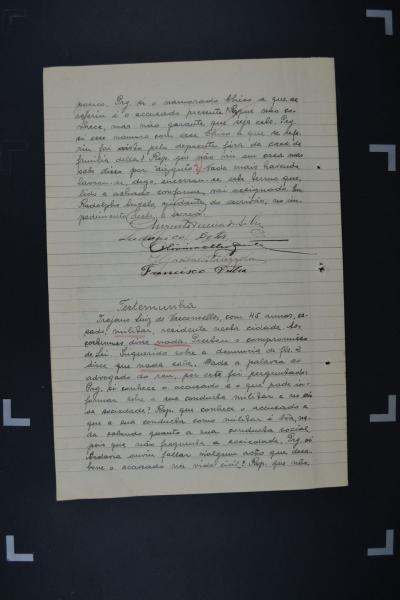 pouco. Prg. si o namorado Chico a que se
referiu é o accusado presente? Resp. que não co-
nhece, mas não garante que seja elle. Prg.
si esse namoro com esse Chico a que se refe-
riu foi visto pela depoente fóra da casa da
familia della? Resp. que não viu em casa mas
sabe disso por Nada mais havendo
lavrou-se, digo, encerrou-se este termo que,
lido e achado conforme, vai assignado. Eu
Rodolpho Angelo, ajudante do escrivão, no im-
pedimento deste o escrevi.
Francisco
Testemunha
Trajano Luiz de Vasconcellos, com 45 annos, ca-
sado, militar, residente nesta cidade. Aos
costumes disse nada. Prestou o compromisso
da lei. Inquerido sobre a denuncia de fls. 2
disse que nada sabe. Dada a palavra ao
advogado do réu, por este foi perguntado:
Prg. si conhece o accusado e o que pode in-
formar sobre a sua conducta militar e na
sociedade? Resp. que conhece o accusado e
que a sua conducta como militar é bôa, na-
da sabendo quanto a sua conducta social
pois que não frequenta a sociedade. Prg. si
ouviu fallar n'algum acto que desa-
bone o accusado na vida civil? Resp. que não